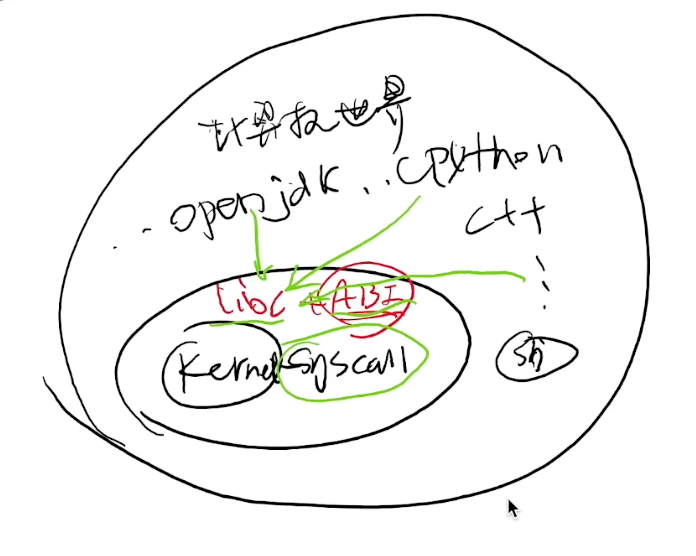 计算机世界
.. openjdk .. CPython
C++
libc + ABI
Kernel Syscall
sh